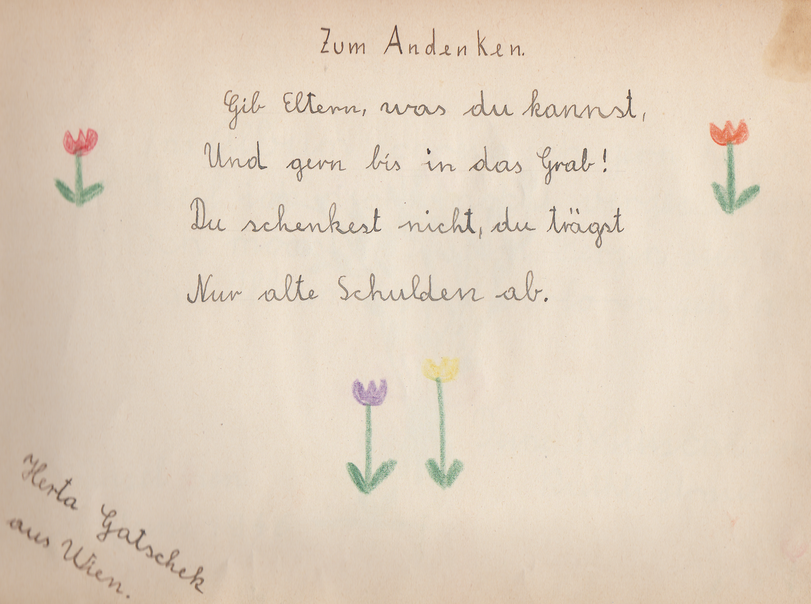 Zum Andenken.
Gib Eltern, was du kannst,
Und gern bis in das Grab!
Du schenkest nicht, du trägst
Nur alte Schulden ab.
Herta Gatschek
aus Wien.